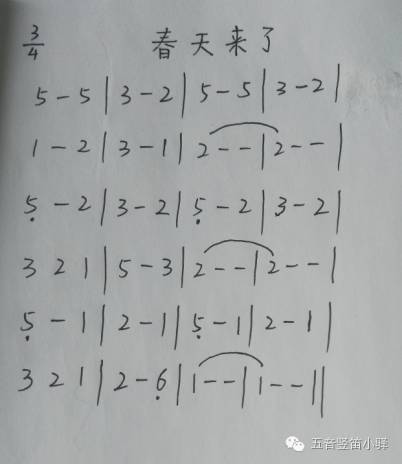 3/4 春天来了
5 - 5 | 3 - 2 | 5 - 5 | 3 - 2 |
1 - 2 | 3 - 1 | 2 - - | 2 - - |
5̣ - 2 | 3 - 2 | 5̣ - 2 | 3 - 2 |
3 2 1 | 5 - 3 | 2 - - | 2 - - |
5̣ - 1 | 2 - 1 | 5̣ - 1 | 2 - 1 |
3 2 1 | 2 - 6̣ | 1 - - | 1 - - ||
五音竖笛小驿